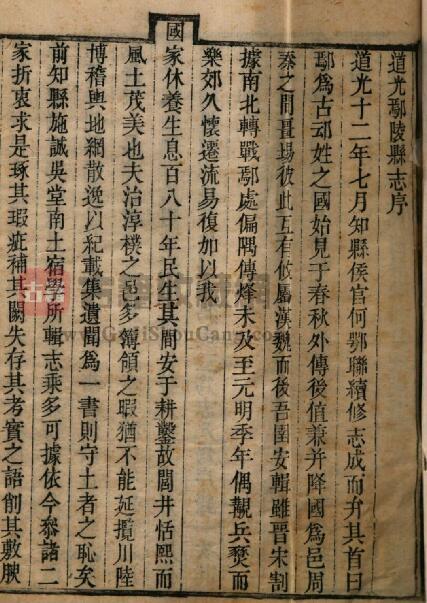 道光鄢陵縣志序
道光十二年七月知縣侯官何鄂聯續修志成而弁其首曰
鄢爲古姓之國始見于春秋外傳後值兼并降國爲邑周
秦之間畺埸彼此互有攸屬漢魏而後吾圉安輯雖晉宋割
據南北轉戰鄢處偏隅傳烽未及至元明季年偶覯兵燹而
樂郊久懷遷流易復加以我
國家休養生息百八十年民生其間安于耕鑿故閭井恬熙而
風土茂美也夫治淳樸之邑多簿領之暇猶不能延攬川陸
博稽輿地網散逸以紀載集遺聞爲一書則守土者之恥矣
前知縣施誠吳堂南土宿學所輯志乘多可據依今叅諸二
家折衷求是琢其瑕疵補其闕失存其考實之語削其敷腴